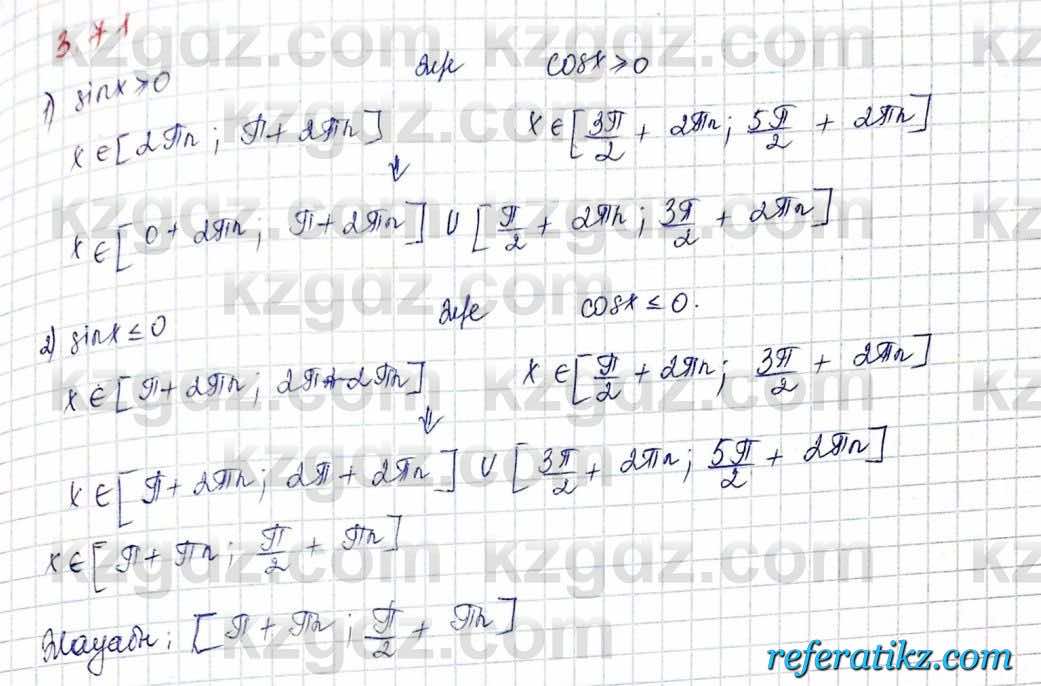 3.71
1) sinx ≥ 0 және cosx ≥ 0
x ∈ [2πn; π + 2πn] x ∈ [3π/2 + 2πn; 5π/2 + 2πn]
⇓
x ∈ [0 + 2πn; π + 2πn] ∪ [π/2 + 2πn; 3π/2 + 2πn]
2) sinx ≤ 0 және cosx ≤ 0.
x ∈ [π + 2πn; 2π + 2πn] x ∈ [π/2 + 2πn; 3π/2 + 2πn]
⇓
x ∈ [π + 2πn; 2π + 2πn] ∪ [3π/2 + 2πn; 5π/2 + 2πn]
x ∈ [π + πn; π/2 + πn]
Жауабы: [π + πn; π/2 + πn]
kzgdz.com
referatikz.com